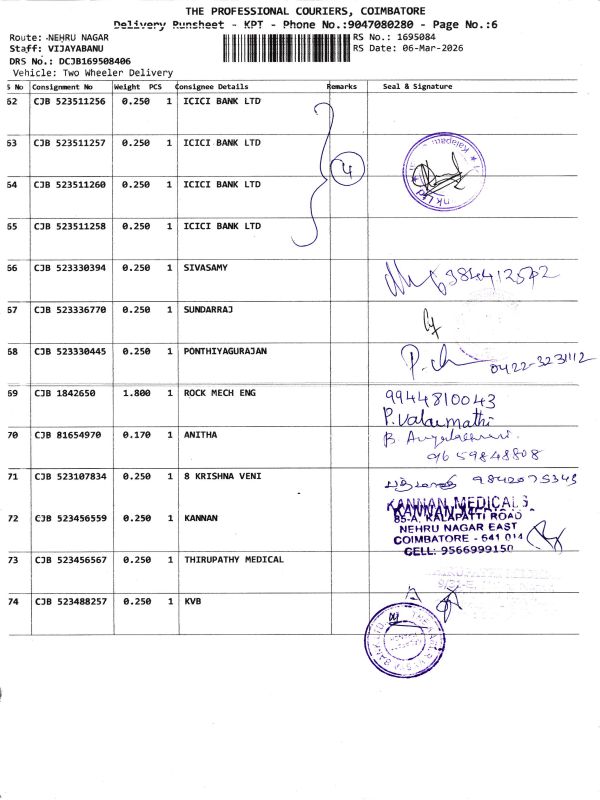 THE PROFESSIONAL COURIERS, COIMBATORE
Delivery Runsheet - KPT - Phone No.:9047080280 - Page No.:6
Route: NEHRU NAGAR
Staff: VIJAYABANU
DRS No.: DCJB169508406
Vehicle: Two Wheeler Delivery
RS No.: 1695084
RS Date: 06-Mar-2026
S No Consignment No Weight PCS Consignee Details Remarks Seal & Signature
62 CJB 523511256 0.250 1 ICICI BANK LTD
63 CJB 523511257 0.250 1 ICICI BANK LTD
4
64 CJB 523511260 0.250 1 ICICI BANK LTD
65 CJB 523511258 0.250 1 ICICI BANK LTD
66 CJB 523330394 0.250 1 SIVASAMY
67 CJB 523336770 0.250 1 SUNDARRAJ
68 CJB 523330445 0.250 1 PONTHIYAGURAJAN 0422-3231112
69 CJB 1842650 1.800 1 ROCK MECH ENG 9944810043
P.Valarmathi
70 CJB 81654970 0.170 1 ANITHA
9659848808
71 CJB 523107834 0.250 1 8 KRISHNA VENI 9842075343
KANNAN MEDICALS
72 CJB 523456559 0.250 1 KANNAN 85-A, KALAPATTI ROAD
NEHRU NAGAR EAST
COIMBATORE - 641 014
CELL: 9566999150
73 CJB 523456567 0.250 1 THIRUPATHY MEDICAL
74 CJB 523488257 0.250 1 KVB